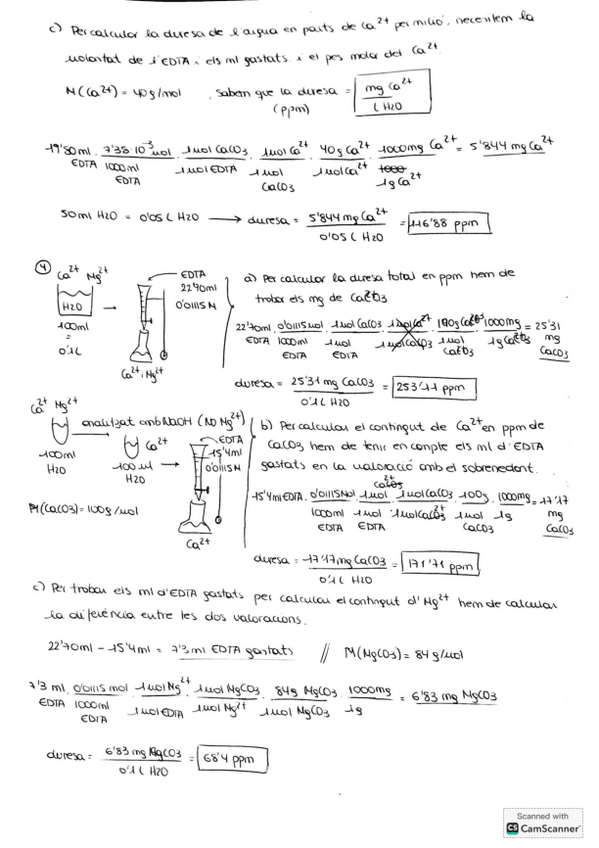 c) Per calcular la duresa de l'aigua en parts de Ca²⁺ per milió, necesitem la
molaritat de l'EDTA i els ml gastats i el pes molar del Ca²⁺.
M(Ca²⁺) = 40g/mol , sabem que la duresa (ppm) = mg Ca²⁺ / L H2O
19'80ml EDTA · 7'38·10⁻³ mol / 1000ml EDTA · 1mol CaCO3 / 1mol EDTA · 1mol Ca²⁺ / 1mol CaCO3 · 40g Ca²⁺ / 1mol Ca²⁺ · 1000mg Ca²⁺ / 1g Ca²⁺ = 5'844 mg Ca²⁺
50ml H2O = 0'05 L H2O → duresa = 5'844 mg Ca²⁺ / 0'05 L H2O = 116'88 ppm
4
Ca²⁺ Mg²⁺
H2O
100ml
=
0'1L
EDTA
22'70ml
0'0115M
Ca²⁺ i Mg²⁺
a) Per calcular la duresa total en ppm hem de
trobar els mg de CaCO3
22'70ml EDTA · 0'0115mol / 1000ml EDTA · 1mol CaCO3 / 1mol EDTA · 1mol Ca²⁺ / 1mol CaCO3 · 100g CaCO3 / 1mol CaCO3 · 1000mg / 1g CaCO3 = 25'31 mg CaCO3
duresa = 25'31 mg CaCO3 / 0'1L H2O = 253'11 ppm
Ca²⁺ Mg²⁺
100ml
H2O
analitzat amb NaOH (NO Mg²⁺)
Ca²⁺
100 ml
H2O
EDTA
15'4ml
0'0115M
Ca²⁺
M(CaCO3) = 100g/mol
b) Per calcular el contingut de Ca²⁺ en ppm de
CaCO3 hem de tenir en compte els ml d'EDTA
gastats en la valoració amb el sobrenedant.
15'4ml EDTA · 0'0115mol / 1000ml EDTA · 1mol Ca²⁺ / 1mol EDTA · 1mol CaCO3 / 1mol Ca²⁺ · 100g / 1mol CaCO3 · 1000mg / 1g = 17'17 mg CaCO3
duresa = 17'17mg CaCO3 / 0'1L H2O = 171'71 ppm
c) Per trobar els ml d'EDTA gastats per calcular el contingut d'Mg²⁺ hem de calcular
la diferència entre les dos valoracions.
22'70ml - 15'4ml = 7'3 ml EDTA gastats // M(MgCO3) = 84 g/mol
7'3 ml EDTA · 0'0115 mol / 1000ml EDTA · 1mol Mg²⁺ / 1mol EDTA · 1mol MgCO3 / 1mol Mg²⁺ · 84g MgCO3 / 1mol MgCO3 · 1000mg / 1g = 6'83 mg MgCO3
duresa = 6'83 mg MgCO3 / 0'1 L H2O = 68'4 ppm
Scanned with
CS CamScanner